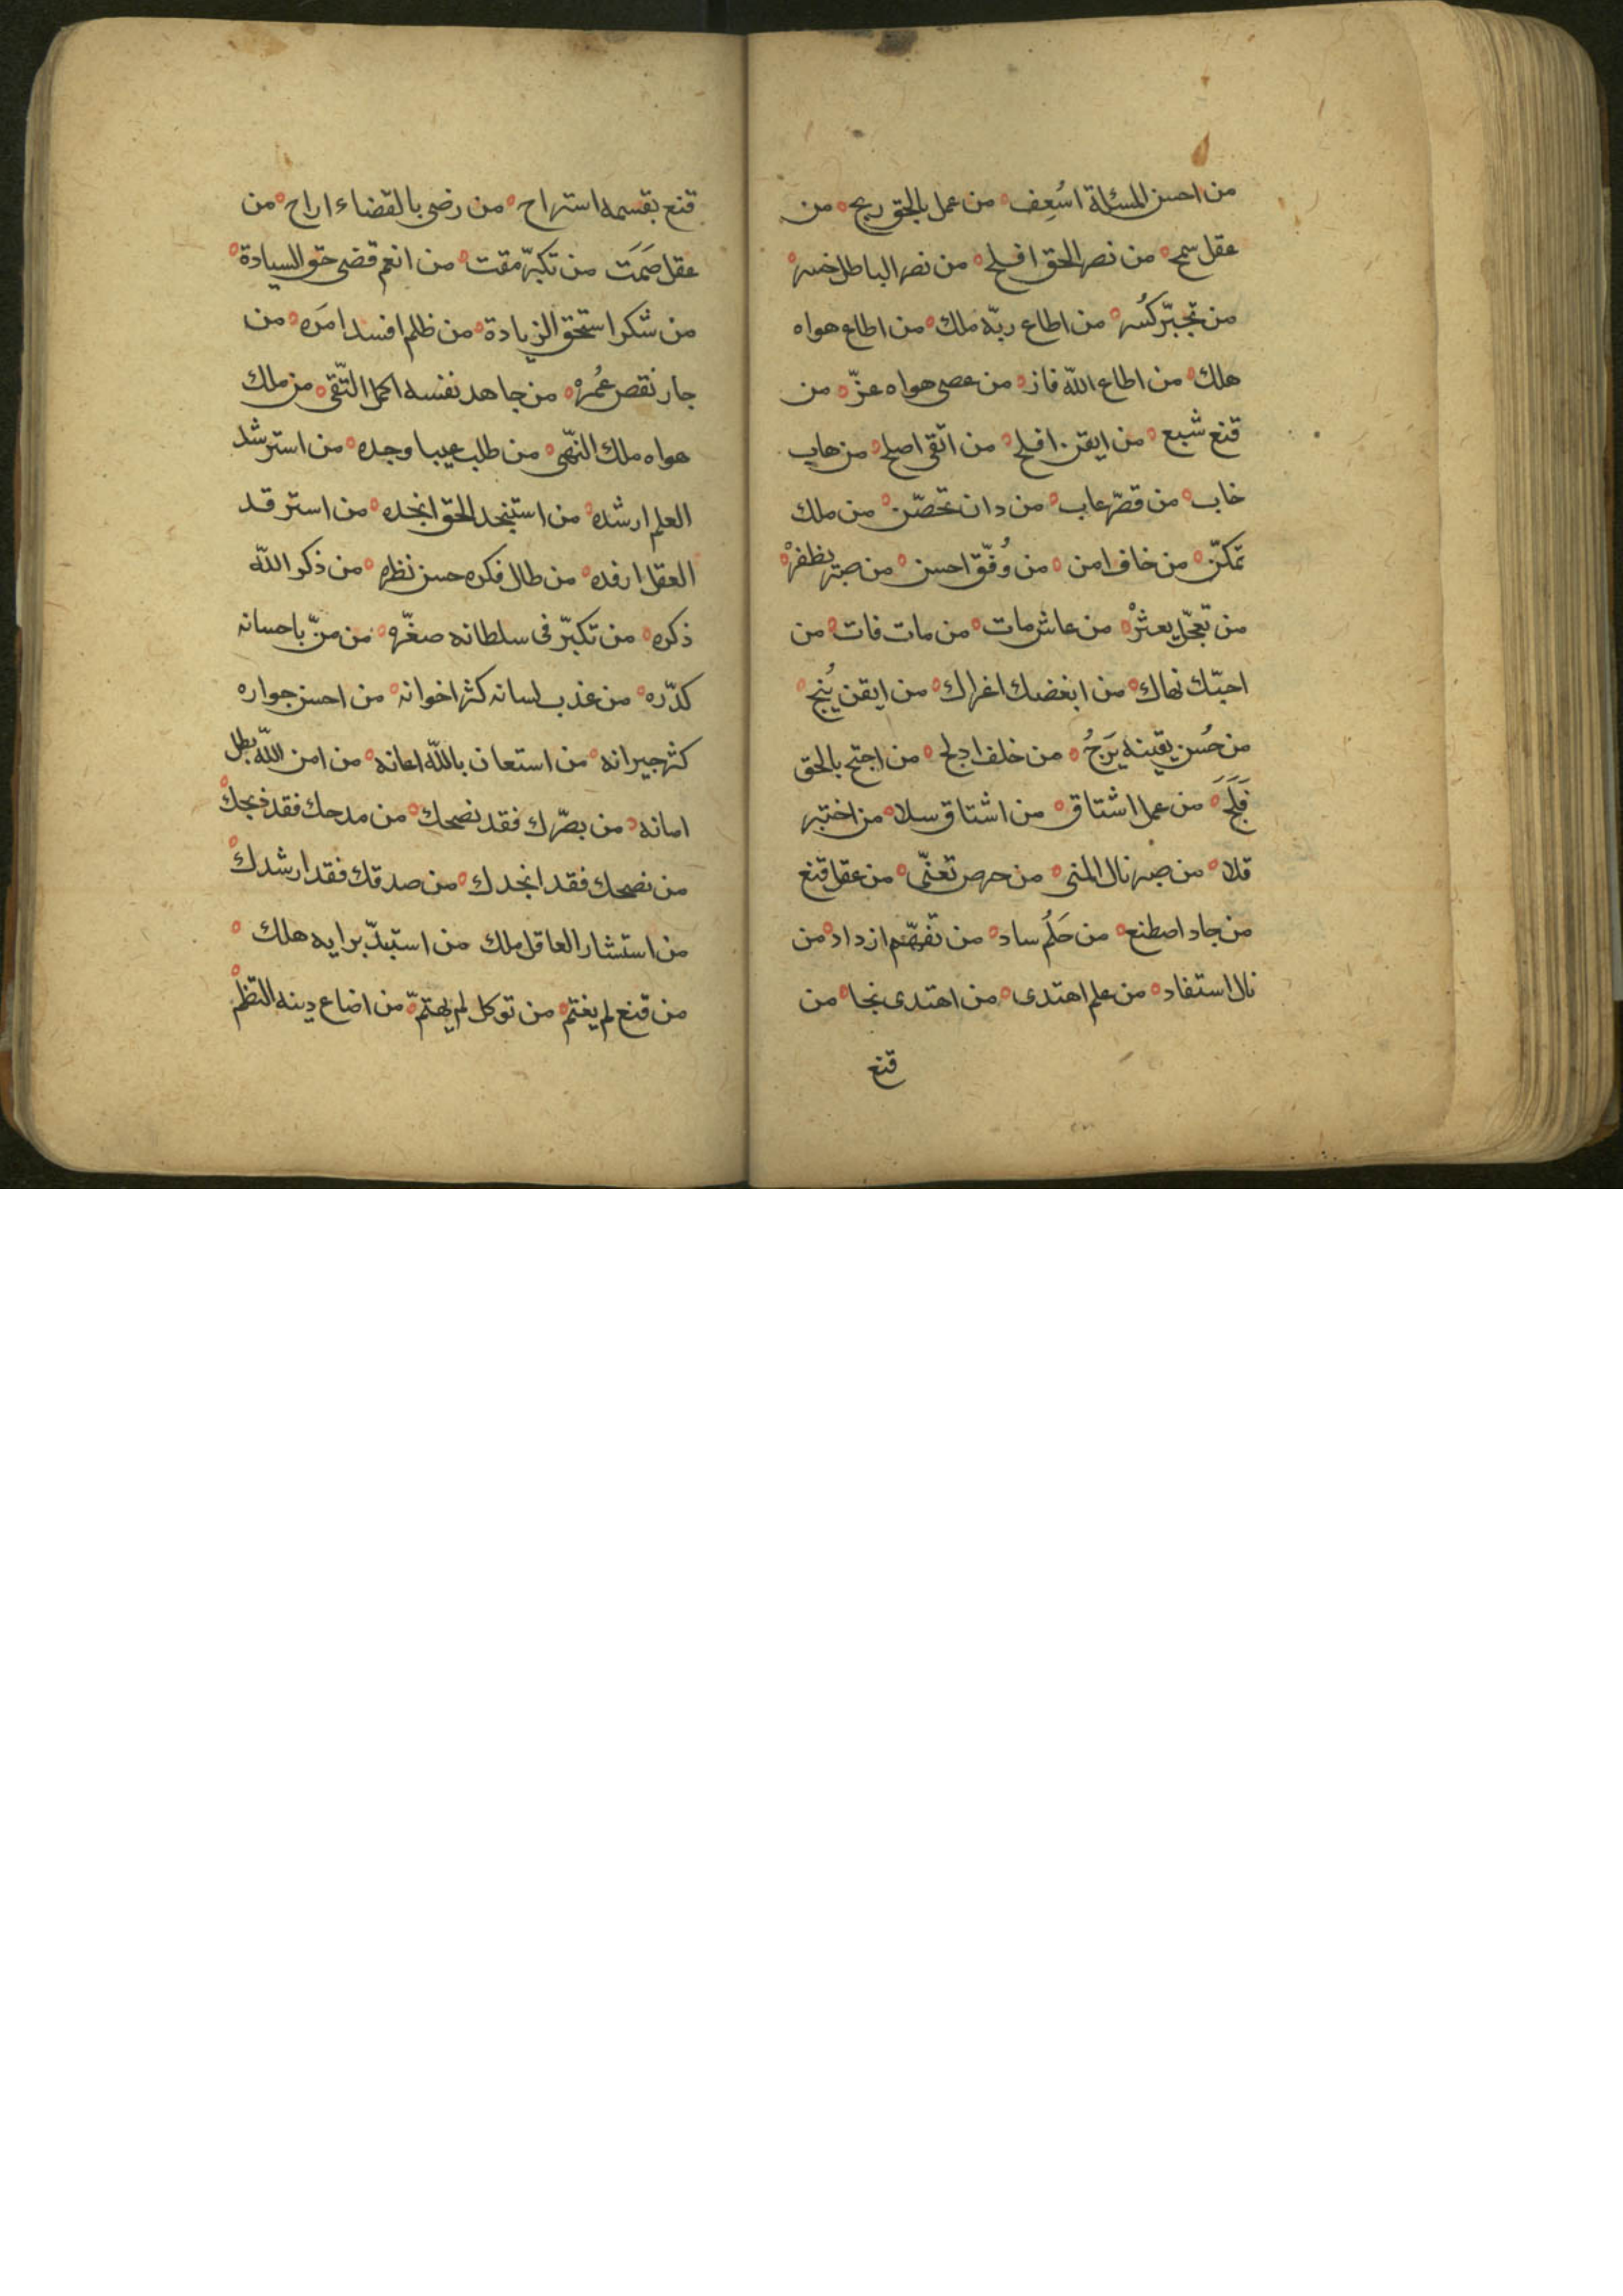 من احسن المسئلة اسُعِف من عمل بالحق ربح من
عقل سمح من نصر الحق افلح من نصر الباطل خسر
من تجبّر كُسر من اطاع ربّه ملك من اطاع هواه
هلك من اطاع الله فاز من عصى هواه عزّ من
قنع شبع من ايقن افلح من اتقى اصلح من هاب
خاب من قصّر عاب من دان تحصّن من ملك
تمكّن من خاف امن من وُفّق احسن من صبر يظفرْ
من تعجّل يعثرْ من عاش مات من مات فات من
احبّك نهاك من ابغضك اغراك من ايقن يُنج
من حُسن يقينه يَرجُ من خاف ادلج من احتج بالحق
فَلَجَ من عمل اشتاق من اشتاق سلا من اختبر
قلا من صبر نال المنى من حرص تعنّى من عقل قنع
من جاد اصطنع من حَلُم ساد من تفهّم ازداد من
نال استفاد من علم اهتدى من اهتدى نجا من
قنع
قنع بقسمه استراح من رضى بالقضاء اراح من
عقل صَمَت من تكبّر مقت من انعم قضى حق السيادة
من شكر استحق الزيادة من ظلم افسد امَره من
جار نقص عُمرهْ من جاهد نفسه اكمل التّقى من ملك
هواه ملك النّهى من طلب عيبا وجده من استرشد
العلم ارشده من استنجد الحق انجده من استرقد
العقل ارفده من طال فكره حسن نظره من ذكر اللّه
ذكره من تكبّر فى سلطانه صغّره من منّ باحسانه
كدّره من عذب لسانه كثر اخوانه من احسن جواره
كثر جيرانه من استعان باللّه اعانه من امن اللّه بطل
امانه من بصّرك فقد نصحك من مدحك فقد ذبحك
من نصحك فقد انجدك من صدقك فقد ارشدك
من استشار العاقل ملك من استبدّ برايه هلك
من قنع لم يغتم من توكل لم يهتمّ من اضاع دينه التظم